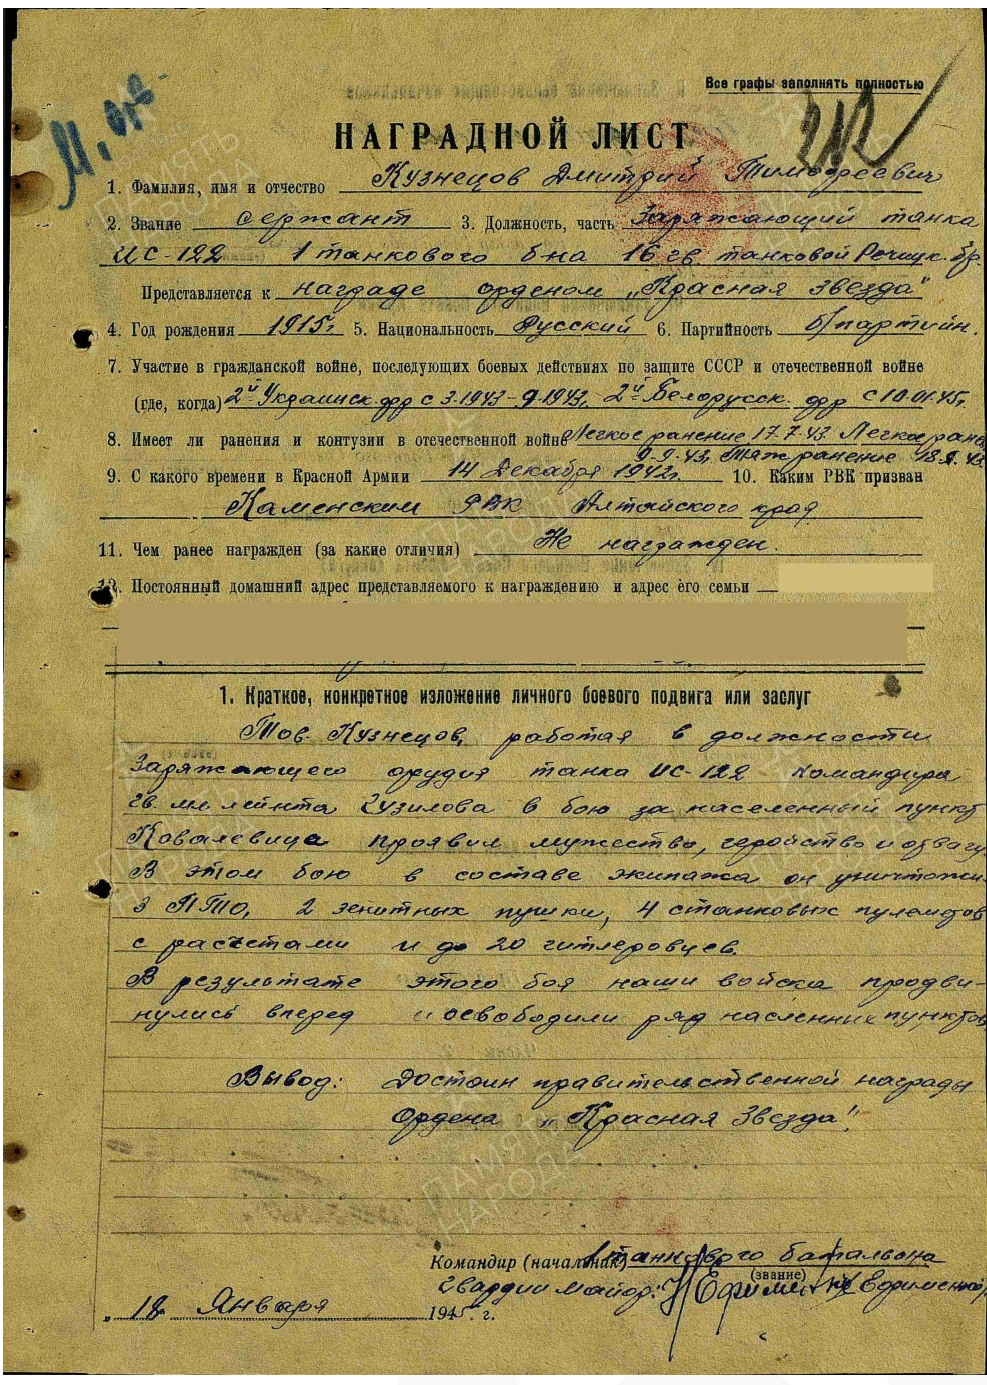 Все графы заполнять полностью
НАГРАДНОЙ ЛИСТ
1. Фамилия, имя и отчество Кузнецов Дмитрий Тимофеевич
2. Звание сержант 3. Должность, часть Заряжающий танка
ИС-122 1 танкового б-на 16 гв. танковой Речицк. бр.
Представляется к награде орденом „Красная звезда"
4. Год рождения 1915г. 5. Национальность Русский 6. Партийность б/партийн.
7. Участие в гражданской войне, последующих боевых действиях по защите СССР и отечественной войне
(где, когда) 2й Украинск. фр с 3.1943-9.1943, 2й Белорусск. фр с 10.01.45г.
8. Имеет ли ранения и контузии в отечественной войне Легкое ранение 17-7-43. Легкое ране
9-9-43, Тяж ранение 18.9.43
9. С какого времени в Красной Армии 14 Декабря 1942г. 10. Каким РВК призван
Каменским РВК Алтайского край
11. Чем ранее награжден (за какие отличия) Не награжден.
12. Постоянный домашний адрес представляемого к награждению и адрес его семьи
1. Краткое, конкретное изложение личного боевого подвига или заслуг
Тов. Кузнецов, работая в должности
Заряжающего орудия танка ИС-122 командира
гв. мл лейнта Гузилова в бою за населенный пункт
Ковалевица проявил мужество, геройство и отвагу.
В этом бою в составе экипажа он уничтожил
3 ПТО, 2 зенитных пушки, 4 станковых пулеметов
с расчетами и до 20 гитлеровцев.
В результате этого боя наши войска продви-
нулись вперед и освободили ряд насленных пунктов
Вывод: Достоин правительственной награды
Ордена „Красная Звезда".
Командир (начальник) 1 танкового баталиона
(звание)
Гвардии майор: Ефименко
„18 Января 1945 г.
ПАМЯТЬ НАРОДА